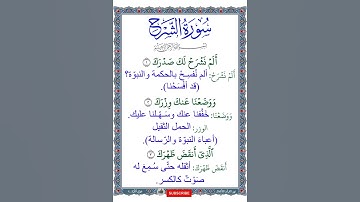 سُورَةُ الشَّرْحِ
أَلَمْ نَشْرَحْ لَكَ صَدْرَكَ ١
أَلَمْ نَشْرَحْ: ألم نُفسِحْ بالحكمة والنبوّة؟
(قد أَفْسَحْنا).
وَوَضَعْنَا عَنكَ وِزْرَكَ ٢
وَوَضَعْنَا: خفَّفنا عنك وسَهَّلنا عليك.
الوِزر: الحمل الثقيل
(أعباءَ النبوّة والرّسالة).
ٱلَّذِىٓ أَنقَضَ ظَهْرَكَ ٣
أَنقَضَ ظَهْرَكَ: أثقله حتّى سُمِعَ له
صَوْتٌ كالكسر.
SUBSCRIBE